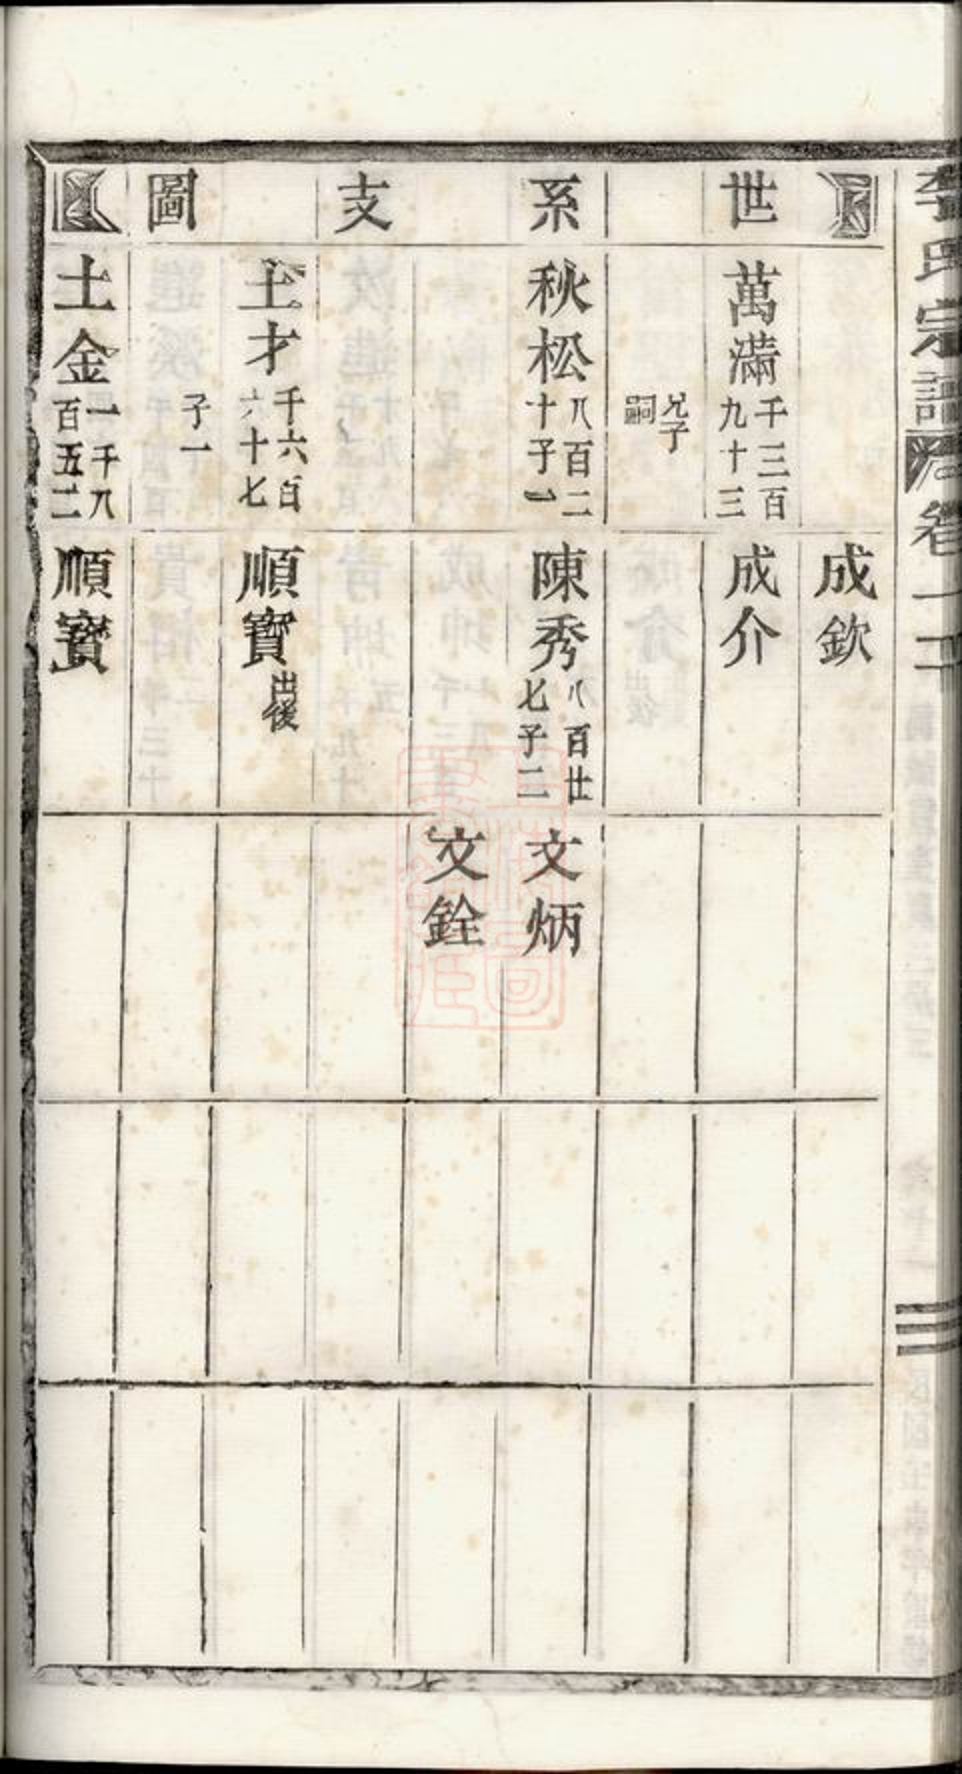 氏宗譜
卷一
世系支圖
成欽
萬滿 千三百九十三 成介
兄子嗣
秋松 八百二十子一 陳秀 八百廿七子二 文炳
文銓
土才 千六百六十七 順寶 出後
子一
土金 一千八百五二 順寶